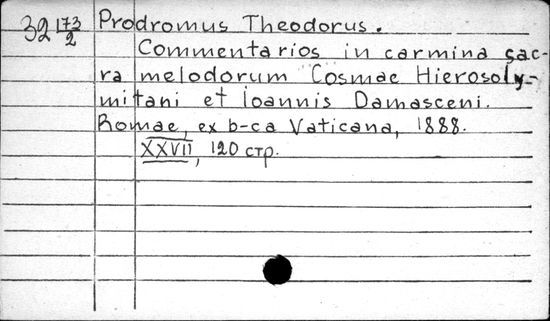 32 173/2 Prodromus Theodorus.
Commentarios in carmina sac-
ra melodorum Cosmae Hierosoly-
mitani et Ioannis Damasceni.
Romae, ex b-ca Vaticana, 1888.
XXVII, 120 стр.